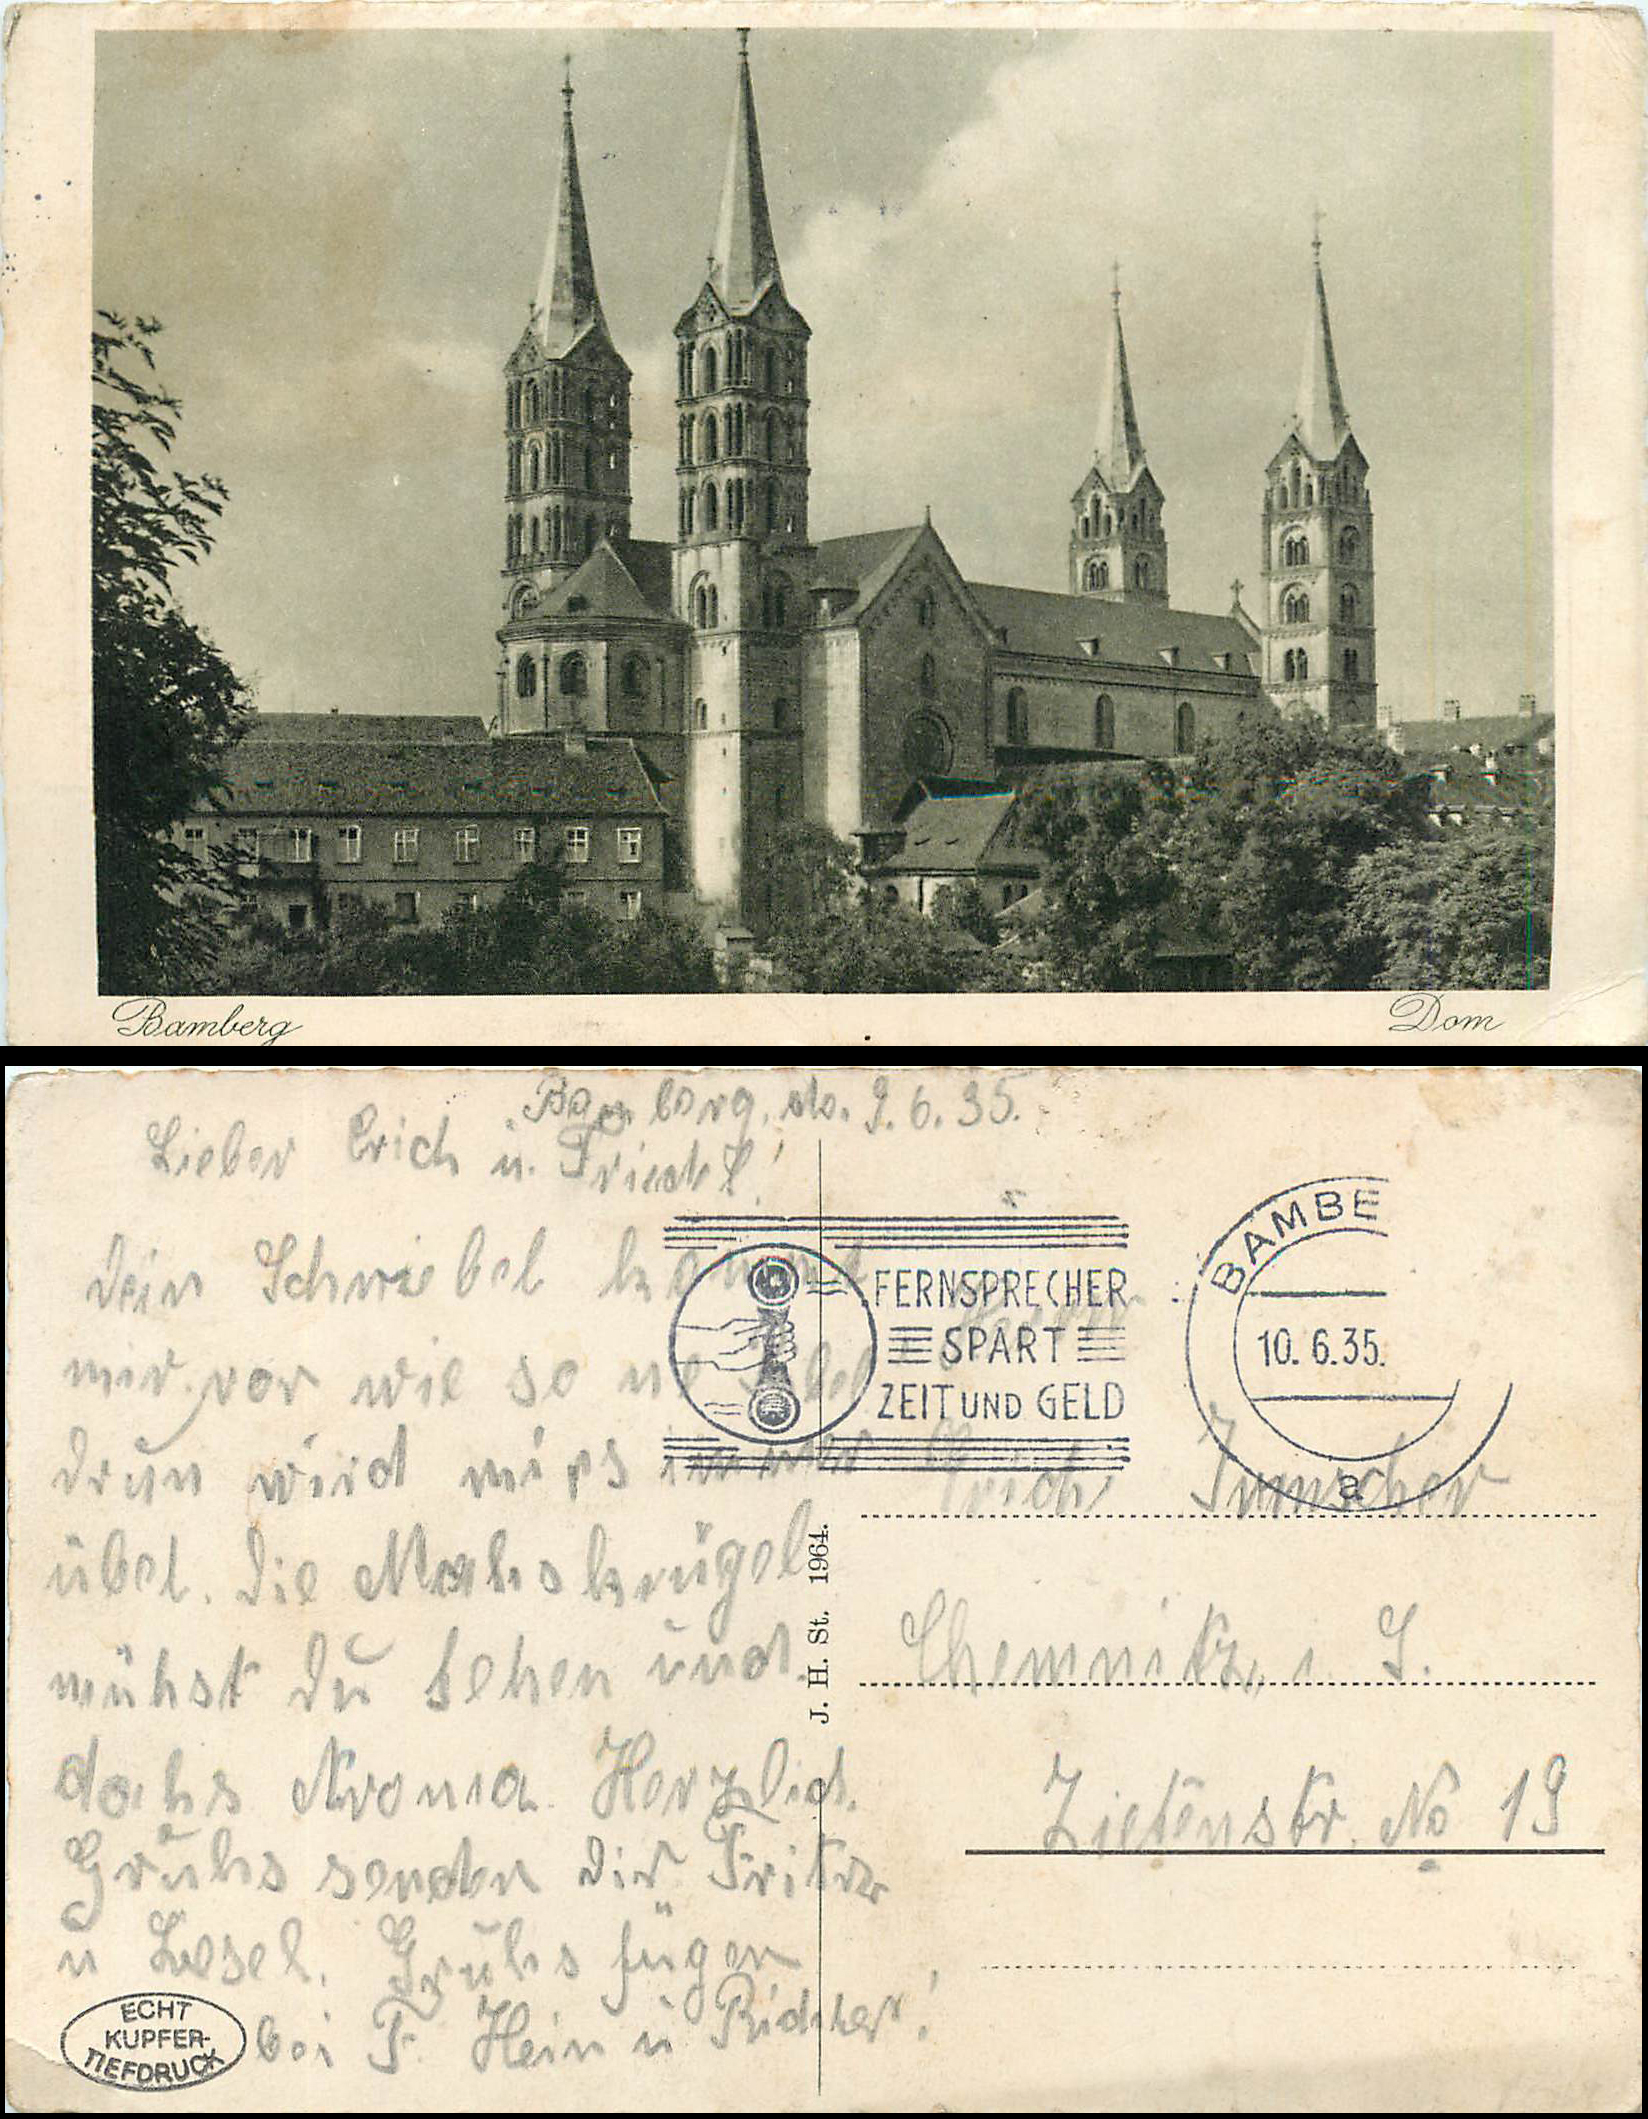 Bamberg
Dom
Bamberg, d. 9. 6. 35.
Lieber Erich u. Friedel!
Dein Schwiebel kommt
mir vor wie so ne
drum wird mirs immer
übel. Die
mühst Du sehen und
Herzlich.
Grühs senden Dir Fritz
u Liesel. Grühs fügen
bei F. Hein u Richter!
ECHT
KUPFER-
TIEFDRUCK
J. H. St. 1964.
FERNSPRECHER
SPART
ZEIT UND GELD
BAMBE
10. 6.35.
a
Herrn
Erich Irmscher
Chemnitz i. S.
Zietenstr. No 19